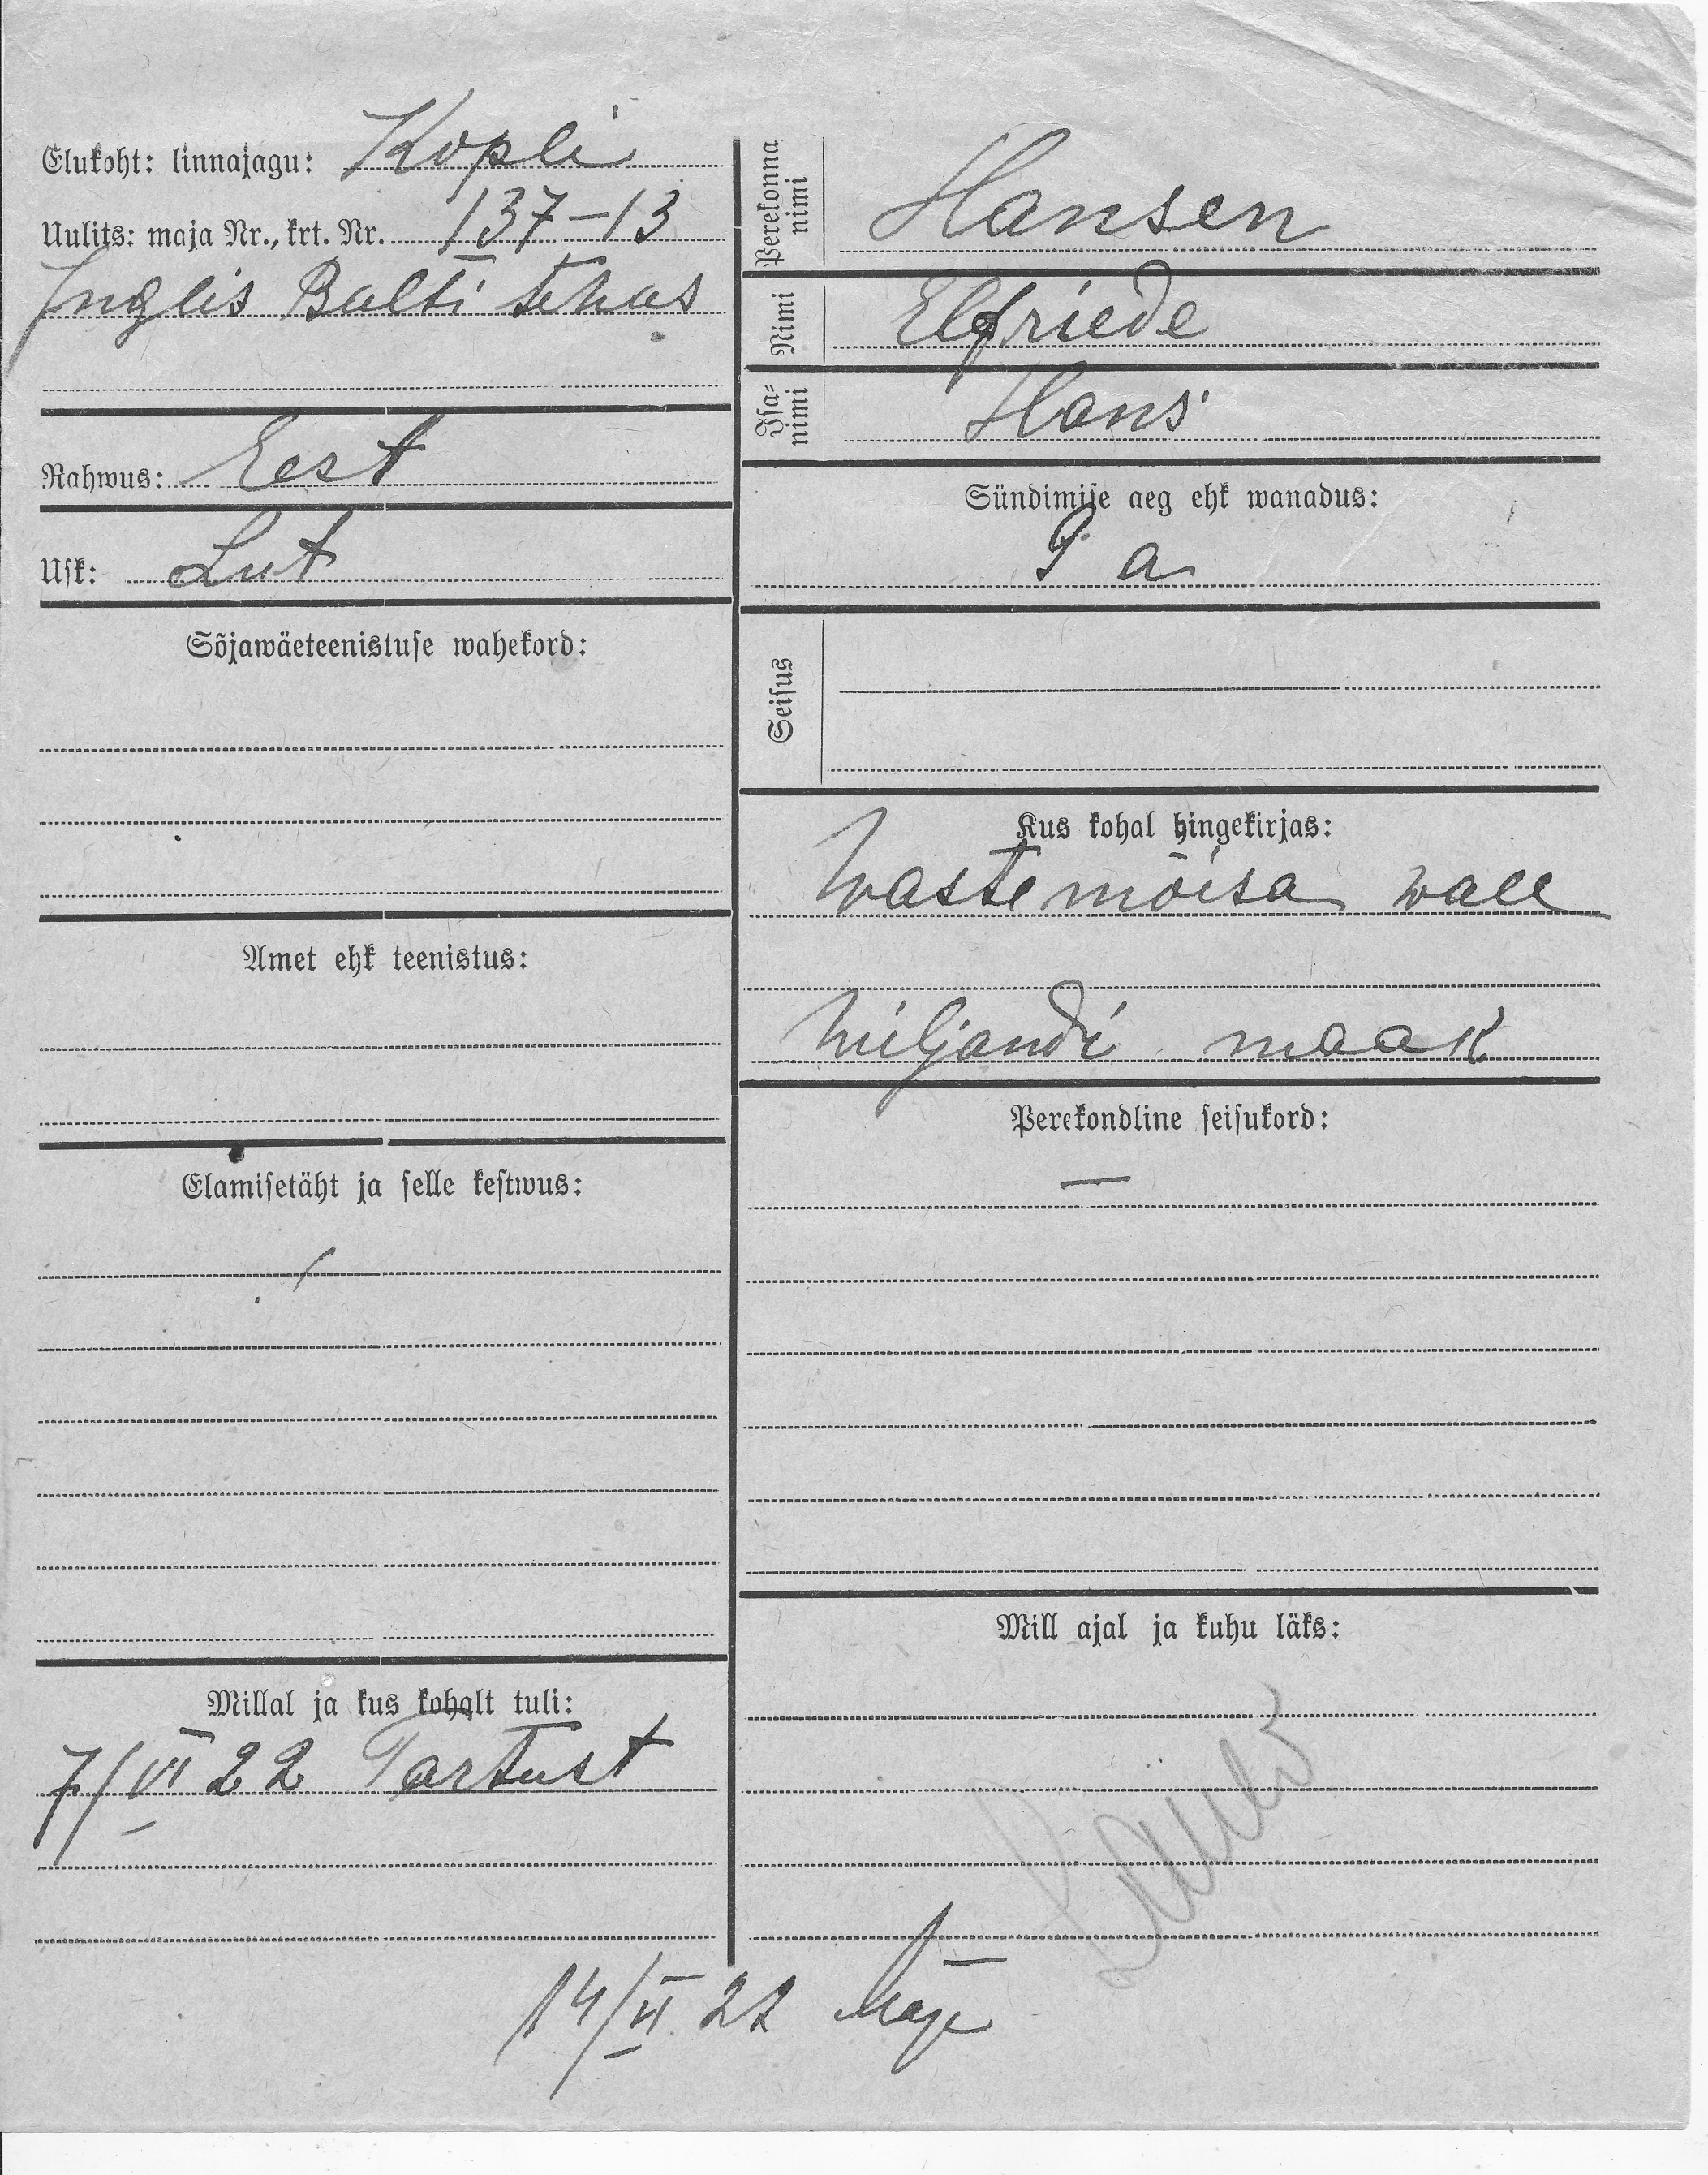 Elukoht: linnajagu: Kopli
Uulits: maja Nr., krt. Nr. 137–13
Inglis Balti tehas
Rahwus: Eest
Usk: Lut
Sõjawäeteenistuse wahekord:
Amet ehk teenistus:
Elamisetäht ja selle kestwus:
Millal ja kus kohalt tuli:
7/VI 22 Tartust
Perekonna nimi Hansen
Nimi Elfriede
Isanimi Hans
Sündimise aeg ehk wanadus:
9 a
Seisus
Kus kohal hingekirjas:
Wastemõisa wall
Wiljandi maak
Perekondline seisukord:
—
Mill ajal ja kuhu läks:
14/VI 22